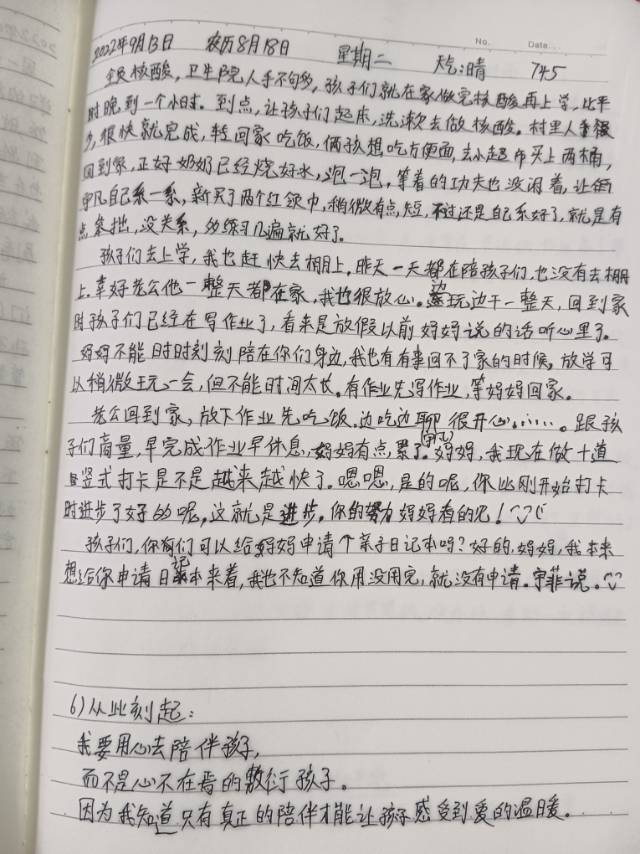 No. Date.
2022年9月13日 农历8月18日 星期二 天气:晴 745
全员核酸,卫生院人手不够多,孩子们就在家做完核酸再上学,比平
时晚到一个小时。到点,让孩子们起床,洗漱去做核酸。村里人手很
多,很快就完成,转回家吃饭,俩孩想吃方便面,去小超市买上两桶,
回到家,正好奶奶已经烧好水,泡一泡,等着的功夫也没闲着,让
宇凡自己系一系,新买了两个红领巾,稍微有点短,不过还是自己系好了,就是有
点笨拙,没关系,多练习几遍就好了。
孩子们去上学,我也赶快去棚上,昨天一天都在陪孩子们,也没有去棚
上。幸好老公他一整天都在家,我也很放心。边玩边干一整天,回到家
时孩子们已经在写作业了,看来是放假以前妈妈说的话听心里了。
妈妈不能时时刻刻陪在你们身边,我也有有事回不了家的时候,放学可
以稍微玩一会,但不能时间太长。有作业先写作业,等妈妈回家。
老公回到家,放下作业先吃饭,边吃边聊很开心……。跟孩
子们商量,早完成作业早休息,妈妈有点累了。(宇凡)妈妈,我现在做十道
竖式打卡是不是越来越快了。嗯嗯,是的呢,你比刚开始打卡
时进步了好多呢,这就是进步,你的努力妈妈看的见!
孩子们,你们可以给妈妈申请个亲子日记本吗?好的,妈妈,我本来
想给你申请日记本来着,我也不知道你用没用完,就没有申请。宇菲说。
6)从此刻起:
我要用心去陪伴孩子,
而不是心不在焉的敷衍孩子。
因为我知道只有真正的陪伴才能让孩子感受到爱的温暖。